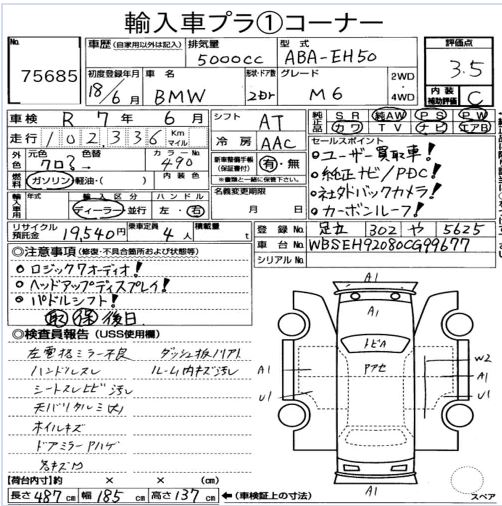 輸入車プラ①コーナー
No. 75685
車歴 (自家用以外は記入) 排気量 5000cc 型式 ABA-EH50 評価点 3.5
初度登録年月 18/6月 車名 BMW 形状・ドア数 2Dr グレード M6 2WD・4WD 内装補助評価 C
車検 R 7年 6月 シフト AT 純正品 SR 純AW PS PW
走行 102,336 Km マイル 冷房 AAC カワ TV ナビ エアB
外色 元色 クロ? 色替 カラーNo. 490 新車整備手帳(保証書付) 有・無 セールスポイント
※書類と一緒に保管して下さい。
燃料 ガソリン・軽油・( ) 内装色
輸入車用 年式 輸入区分 ディーラー・並行 ハンドル 左・右 名義変更期限 月 日
ユーザー買取車!
純正ナビ/PDC!
社外バックカメラ!
カーボンルーフ!
リサイクル預託金 19,540円 乗車定員 4人 積載量 t 登録番号 足立 302 や 5625
車台No. WBSEH92080CG99677
シリアルNo.
◎注意事項 (修復・不具合箇所および状態等)
ロジック7オーディオ!
ヘッドアップディスプレイ!
パドルシフト!
取 保 後日
◎検査員報告 (USS使用欄)
左電格ミラー不良 ダッシュ板ハリアト
ハンドルスレ ルーム内キズ汚レ
シートスレヒビ 汚レ
天バリタルミ 大
ホイルキズ
ドアミラーアハゲ
A1
A1
トビA
アアセ
A1
U1
W2
A1
U1
A1
スペア
【荷台内寸】約 × × (cm)
長さ 487 cm 幅 185 cm 高さ 137 cm ←(車検証上の寸法)